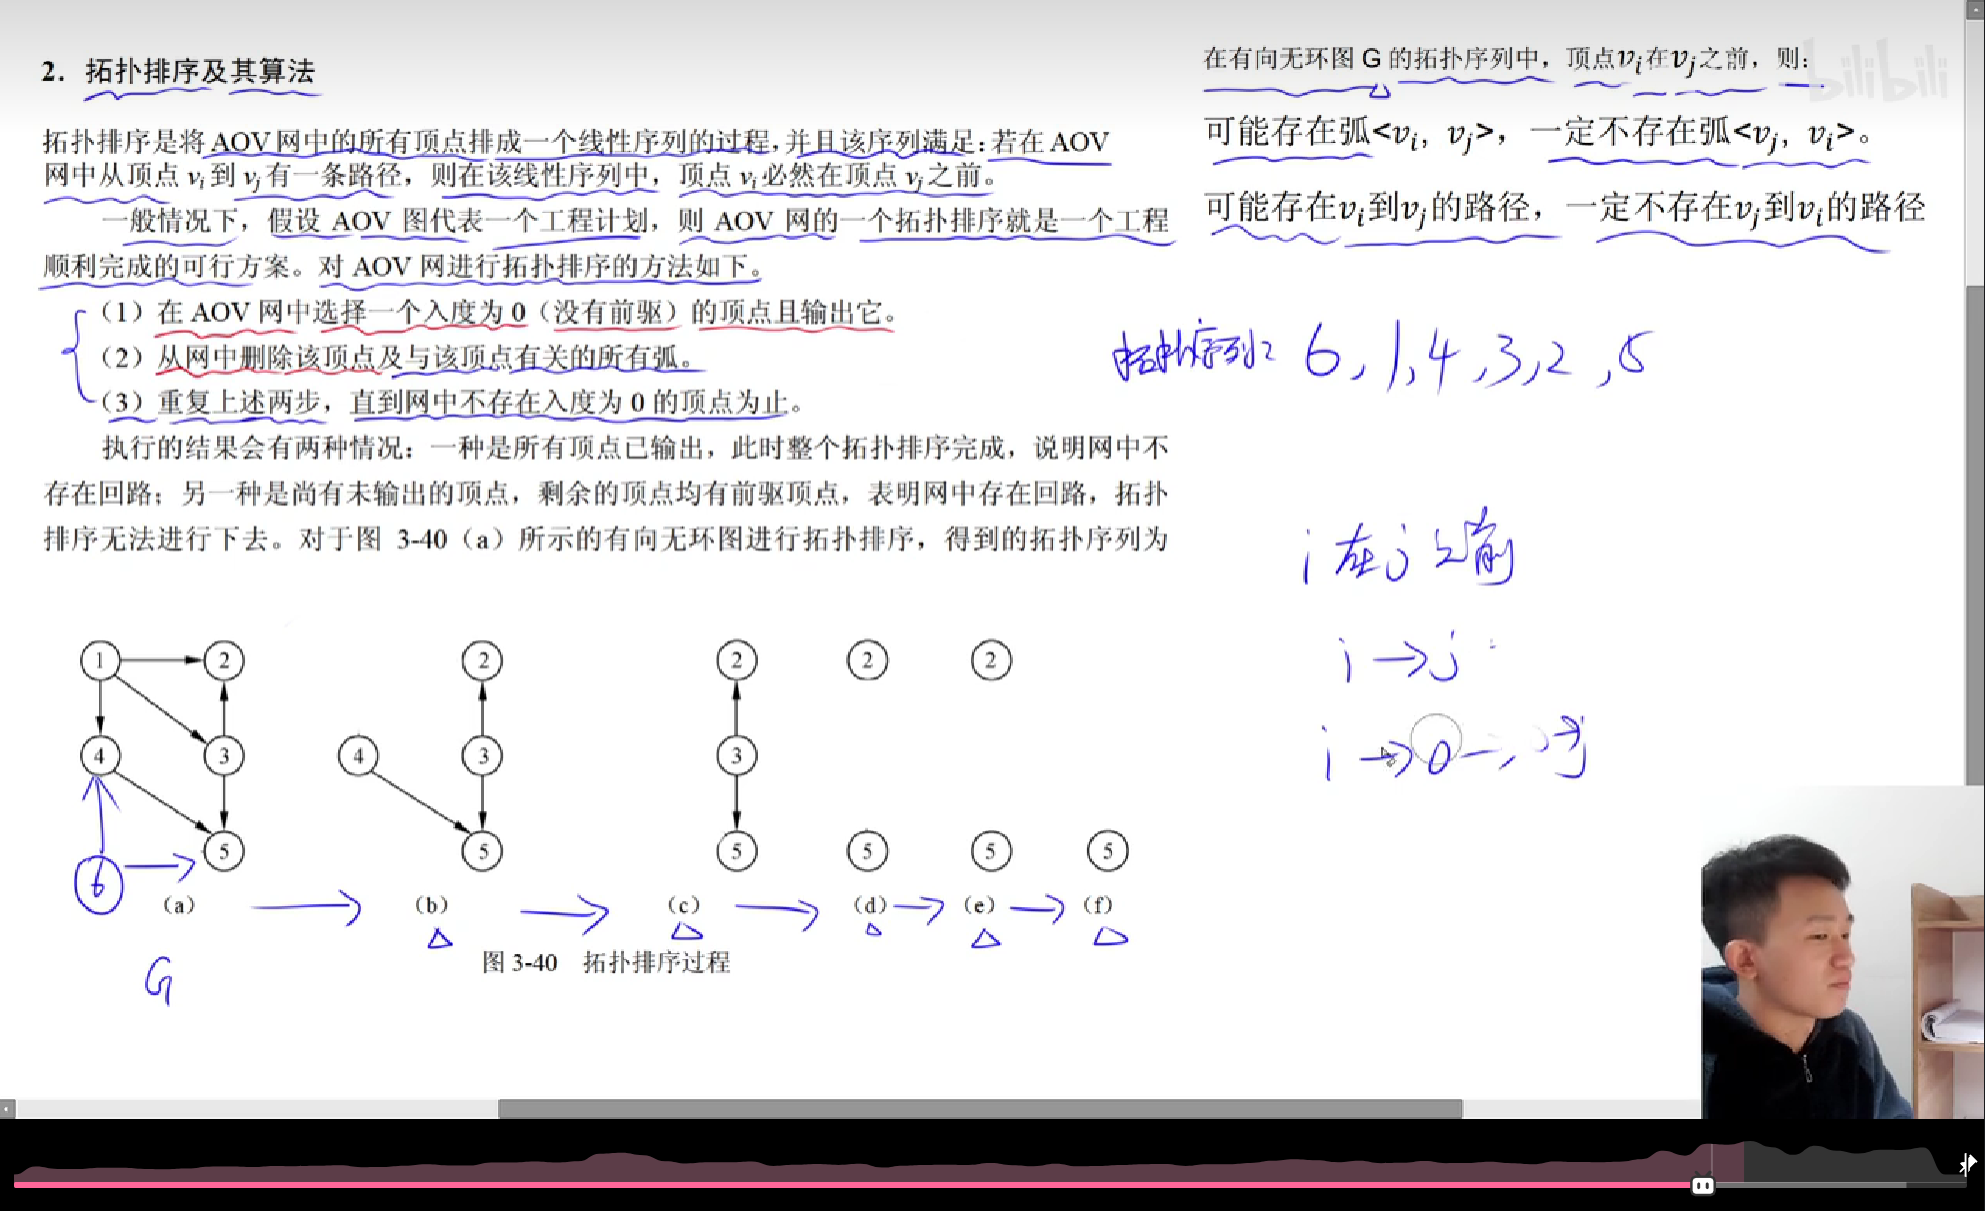 2. 拓扑排序及其算法
拓扑排序是将 AOV 网中的所有顶点排成一个线性序列的过程,并且该序列满足:若在 AOV
网中从顶点 vi 到 vj 有一条路径，则在该线性序列中，顶点 vi 必然在顶点 vj 之前。
一般情况下，假设 AOV 图代表一个工程计划，则 AOV 网的一个拓扑排序就是一个工程
顺利完成的可行方案。对 AOV 网进行拓扑排序的方法如下。
（1）在 AOV 网中选择一个入度为 0（没有前驱）的顶点且输出它。
（2）从网中删除该顶点及与该顶点有关的所有弧。
（3）重复上述两步，直到网中不存在入度为 0 的顶点为止。
执行的结果会有两种情况：一种是所有顶点已输出，此时整个拓扑排序完成，说明网中不
存在回路；另一种是尚有未输出的顶点，剩余的顶点均有前驱顶点，表明网中存在回路，拓扑
排序无法进行下去。对于图 3-40（a）所示的有向无环图进行拓扑排序，得到的拓扑序列为
在有向无环图 G 的拓扑序列中，顶点vi在vj之前，则:
bilibili
可能存在弧<vi，vj>，一定不存在弧<vj，vi>。
可能存在vi到vj的路径，一定不存在vj到vi的路径
拓扑序列: 6,1,4,3,2,5
i 在 j 之前
i → j
i → 0 → 0 → j
1 2 2 2 2 2
4 3 4 3 3
5 5 5 5 5 5
6
（a） （b） （c） （d） （e） （f）
图 3-40 拓扑排序过程
G